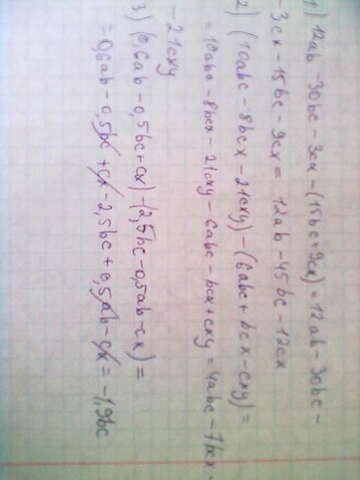 1) 12ab - 30bc - 3cx - (15bc + 9cx) = 12ab - 30bc -
- 3cx - 15bc - 9cx = 12ab - 45bc - 12cx
2) (10abc - 8bcx - 21cxy) - (6abc + bcx - cxy) =
= 10abc - 8bcx - 21cxy - 6abc - bcx + cxy = 4abc - 7bcx -
- 21cxy
3) (0,6ab - 0,5bc + cx) - (2,5bc - 0,5ab - cx) =
= 0,6ab - 0,5bc + cx - 2,5bc + 0,5ab - cx = -1,9bc